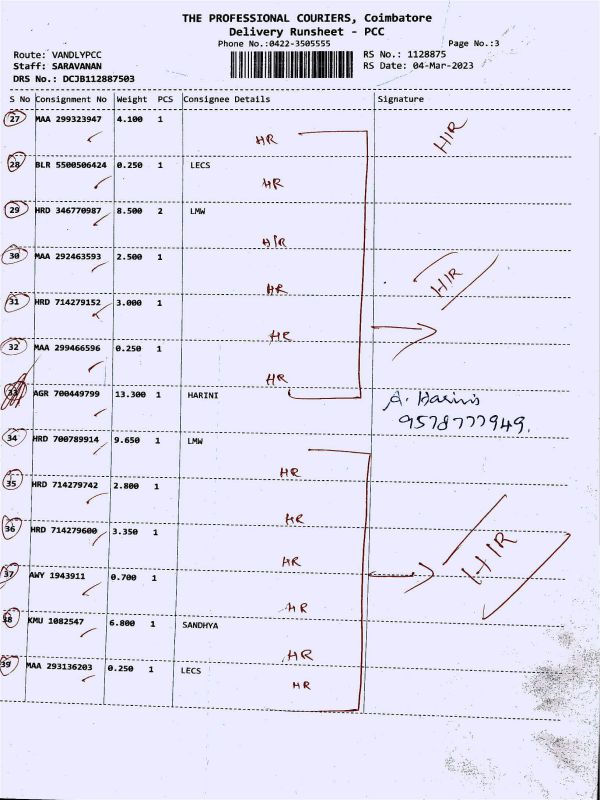 THE PROFESSIONAL COURIERS, Coimbatore
Delivery Runsheet - PCC
Phone No.:0422-3505555 Page No.:3
Route: VANDLYPCC RS No.: 1128875
Staff: SARAVANAN RS Date: 04-Mar-2023
DRS No.: DCJB112887503
S No Consignment No Weight PCS Consignee Details Signature
27 MAA 299323947 4.100 1
HR HIR
28 BLR 5500506424 0.250 1 LECS
HR
29 HRD 346770987 8.500 2 LMW
HIR
30 MAA 292463593 2.500 1
HR HIR
31 HRD 714279152 3.000 1
HR
32 MAA 299466596 0.250 1
HR
33 AGR 700449799 13.300 1 HARINI A. Harini
9578777949.
34 HRD 700789914 9.650 1 LMW
HR
35 HRD 714279742 2.800 1
HR
36 HRD 714279600 3.350 1
HR HIR
37 AWY 1943911 0.700 1
HR
38 KMU 1082547 6.800 1 SANDHYA
HR
39 MAA 293136203 0.250 1 LECS
HR